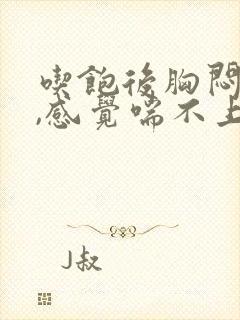 喫飽後胸悶
,感覺喘不上
J叔